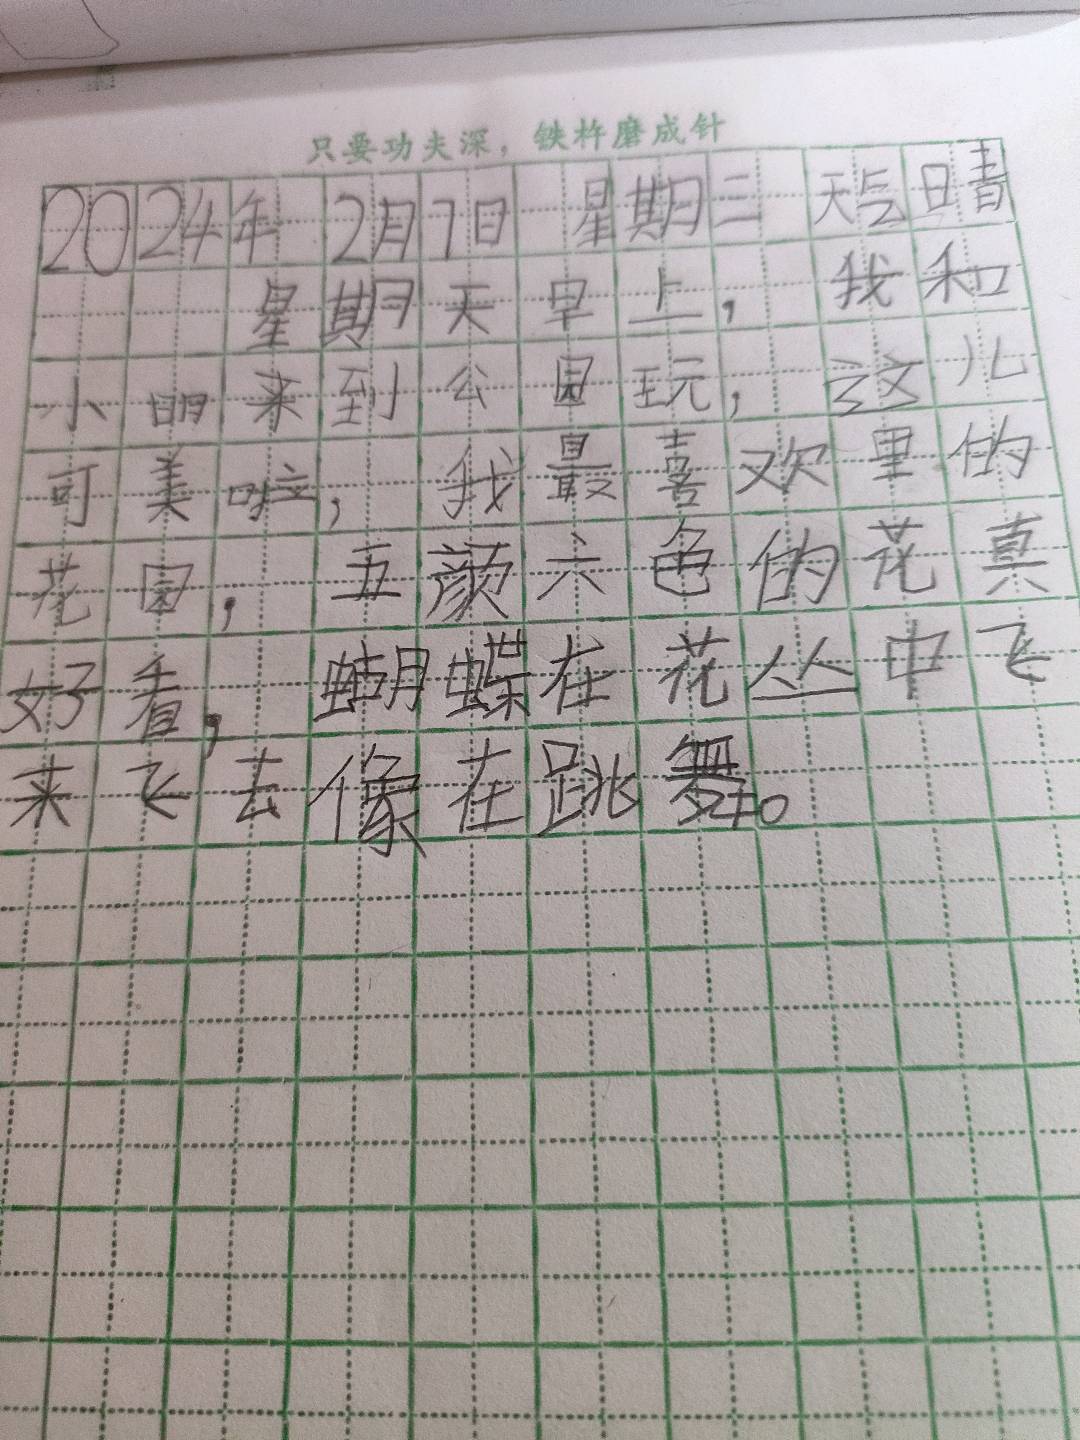 只要功夫深，铁杵磨成针
2024年 2月7日 星期三 天气晴
星期天早上，我和
小丽来到公园玩，这儿
可美啦，我最喜欢里的
花园，五颜六色的花真
好看，蝴蝶在花丛中飞
来飞去像在跳舞。